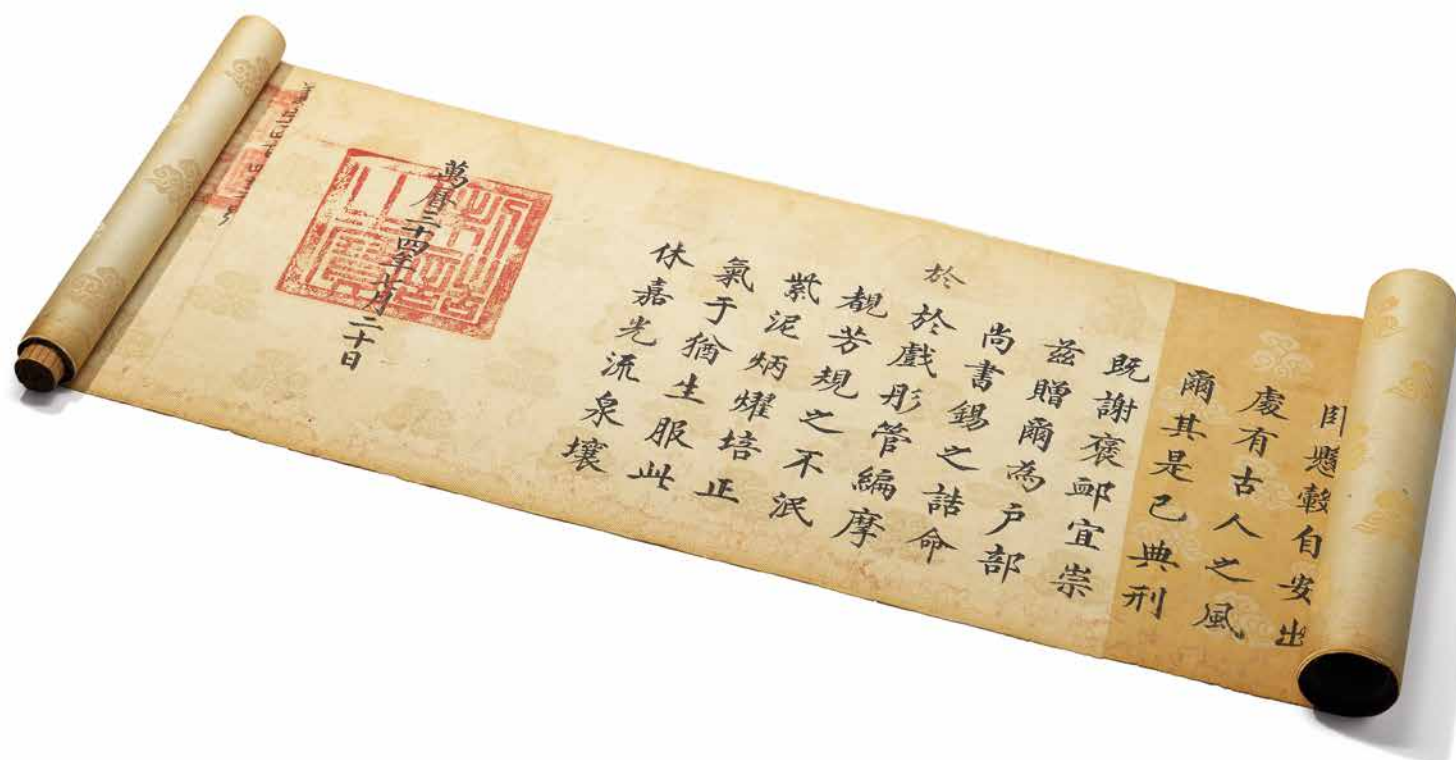 懸轂自安出
處有古人之風
爾其是已典刑
既謝褒卹宜崇
茲贈爾為户部
尚書錫之誥命
於
於戲彤管編摩
覩芳規之不泯
紫泥炳燿培正
氣于猶生服此
休嘉光流泉壤
萬曆三十四年七月二十日
制誥之寶